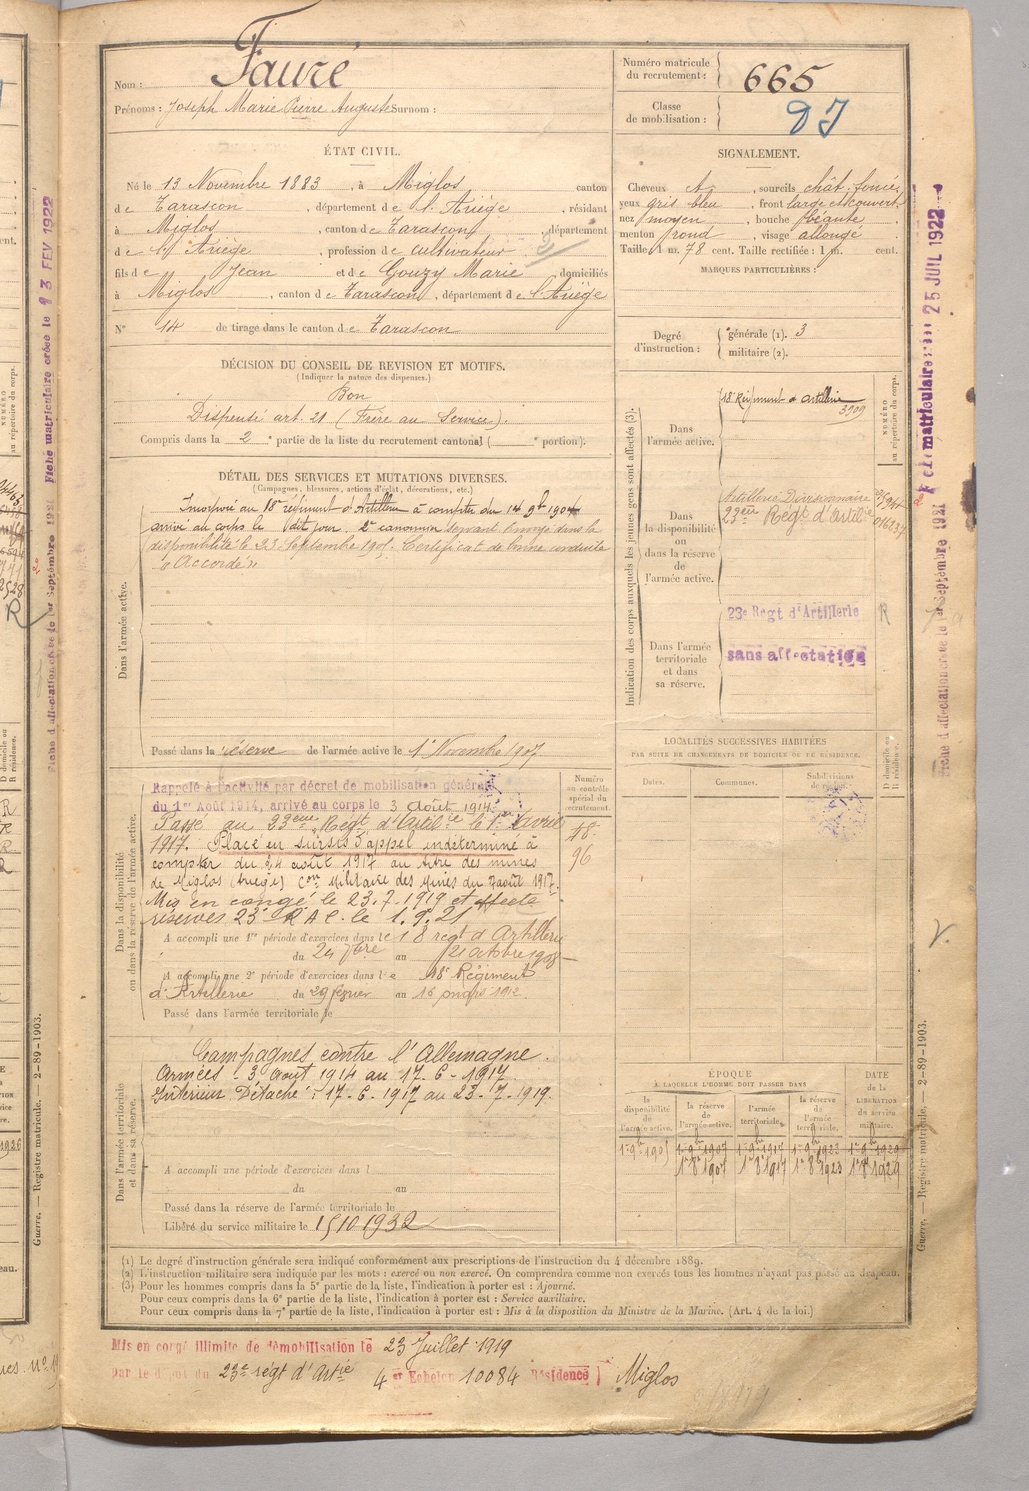 Nom : Fauré
Prénoms : Joseph Marie Pierre Auguste Surnom :
Numéro matricule du recrutement : 665
Classe de mobilisation :
ÉTAT CIVIL.
Né le 13 Novembre 1883, à Miglos canton
de Tarascon, département de l'Ariège, résidant
à Miglos, canton de Tarascon, département
de l'Ariège, profession de cultivateur
fils de Jean et de Gouzy Marie, domiciliés
à Miglos, canton de Tarascon, département de l'Ariège
N° 14 de tirage dans le canton de Tarascon
SIGNALEMENT.
Cheveux , sourcils chât. foncé
yeux gris bleu, front large découvert
nez moyen, bouche béante
menton rond, visage allongé
Taille 1 m. 78 cent. Taille rectifiée : 1 m. cent.
MARQUES PARTICULIÈRES :
Degré d'instruction : générale (1). 3
militaire (2).
DÉCISION DU CONSEIL DE REVISION ET MOTIFS.
(Indiquer la nature des dispenses.)
Bon
Dispensé art. 21 (Frère au Service).
Compris dans la 2e partie de la liste du recrutement cantonal ( e portion).
DÉTAIL DES SERVICES ET MUTATIONS DIVERSES.
(Campagnes, blessures, actions d'éclat, décorations, etc.)
Dans l'armée active.
Incorporé au 18e régiment d'Artillerie à compter du 14 9bre 1904
arrivé au corps le dit jour. 2e canonnier servant Envoyé dans la
disponibilité le 23 Septembre 1905. Certificat de bonne conduite
"Accordé"
Passé dans la réserve de l'armée active le 1er Novembre 1907
Indication des corps auxquels les jeunes gens sont affectés (3).
NUMÉRO au répertoire du corps.
Dans l'armée active.
18e Régiment d'Artillerie
3909
Dans la disponibilité ou dans la réserve de l'armée active.
Artillerie Divisionnaire
23ème Régt d'Artilie
Dans l'armée territoriale et dans sa réserve.
23e Regt d'Artillerie R
sans affectation
LOCALITÉS SUCCESSIVES HABITÉES
PAR SUITE DE CHANGEMENTS DE DOMICILE OU DE RÉSIDENCE.
Dates. Communes. Subdivisions de région.
D domicile ou R résidence.
Dans la disponibilité ou dans la réserve de l'armée active.
Numéro au contrôle spécial du recrutement.
Rappelé à l'activité par décret de mobilisation générale
du 1er Août 1914, arrivé au corps le 3 Août 1914
Passé au 23ème Régt d'Artilie le 1er Avril
1917. Placé en sursis d'appel indéterminé à
compter du 24 août 1917 au titre des mines
de Miglos (Ariège) Con Militaire des Mines du août 1917.
Mis en congé le 23.7.1919 et affecté
réserves 23e R A C. le 1.9.21
18
96
A accompli une 1re période d'exercices dans le 18 régt d'Artillerie
du 24 7bre au 21 octobre 1908
A accompli une 2e période d'exercices dans le 18e Régiment
d'Artillerie du 29 février au 16 mars 1912.
Passé dans l'armée territoriale le
Dans l'armée territoriale et dans sa réserve.
Campagnes contre l'Allemagne.
Armées - 3 août 1914 au 17-6-1917
Intérieur Détaché : 17-6-1917 au 23-7-1919.
A accompli une période d'exercices dans l
du au
Passé dans la réserve de l'armée territoriale le
Libéré du service militaire le 15 10 1932
ÉPOQUE
À LAQUELLE L'HOMME DOIT PASSER DANS
DATE de la LIBÉRATION du service militaire.
la disponibilité de l'armée active. la réserve de l'armée active. l'armée territoriale. la réserve de l'armée territoriale.
1er 9bre 1905 1er 9bre 1907 1er 9bre 1917 1er 9bre 1923 1er 9bre 1929
1er 8bre 1907 1er 8bre 1917 1er 8bre 1923 1er 8bre 1929
(1) Le degré d'instruction générale sera indiqué conformément aux prescriptions de l'instruction du 4 décembre 1889.
(2) L'instruction militaire sera indiquée par les mots : exercé ou non exercé. On comprendra comme non exercés tous les hommes n'ayant pas passé au drapeau.
(3) Pour les hommes compris dans la 5e partie de la liste, l'indication à porter est : Ajourné.
Pour ceux compris dans la 6e partie de la liste, l'indication à porter est : Service auxiliaire.
Pour ceux compris dans la 7e partie de la liste, l'indication à porter est : Mis à la disposition du Ministre de la Marine. (Art. 4 de la loi.)
Mis en congé illimité de démobilisation le 23 Juillet 1919
par le dépôt du 23e régt d'Artie 4er Echelon 10084 Résidence Miglos
Guerre. — Registre matricule. — 2-89-1903.
Fiche matriculaire créée le 25 JUIL 1922
Fiche d'affectation créée le 1er Septembre 1921
Fiche matriculaire créée le 23 FEV 1922
Fiche d'affectation créée le 1er Septembre 1921
Guerre. — Registre matricule. — 2-89-1903.